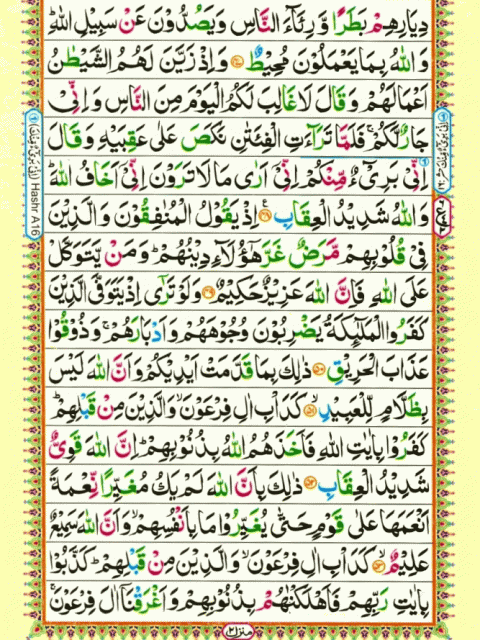 دِيَارِهِمْ بَطَرًا وَّرِئَآءَ النَّاسِ وَيَصُدُّوْنَ عَنْ سَبِيْلِ اللّٰهِ ؕ
وَاللّٰهُ بِمَا يَعْمَلُوْنَ مُحِيْطٌ ﴿۴۷﴾ وَاِذْ زَيَّنَ لَهُمُ الشَّيْطٰنُ
اَعْمَالَهُمْ وَقَالَ لَا غَالِبَ لَكُمُ الْيَوْمَ مِنَ النَّاسِ وَاِنِّىْ
جَارٌ لَّكُمْ ۚ فَلَمَّا تَرَآءَتِ الْفِئَتٰنِ نَكَصَ عَلٰى عَقِبَيْهِ وَقَالَ
اِنِّىْ بَرِىْٓءٌ مِّنْكُمْ اِنِّىْۤ اَرٰى مَا لَا تَرَوْنَ اِنِّىْۤ اَخَافُ اللّٰهَ ؕ
وَاللّٰهُ شَدِيْدُ الْعِقَابِ ﴿۴۸﴾ اِذْ يَقُوْلُ الْمُنٰفِقُوْنَ وَالَّذِيْنَ
فِىْ قُلُوْبِهِمْ مَّرَضٌ غَرَّ هٰٓؤُلَآءِ دِيْنُهُمْ ؕ وَمَنْ يَّتَوَكَّلْ
عَلَى اللّٰهِ فَاِنَّ اللّٰهَ عَزِيْزٌ حَكِيْمٌ ﴿۴۹﴾ وَلَوْ تَرٰٓى اِذْ يَتَوَفَّى الَّذِيْنَ
كَفَرُوا الْمَلٰٓئِكَةُ يَضْرِبُوْنَ وُجُوْهَهُمْ وَاَدْبَارَهُمْ ۚ وَذُوْقُوْا
عَذَابَ الْحَرِيْقِ ﴿۵۰﴾ ذٰلِكَ بِمَا قَدَّمَتْ اَيْدِيْكُمْ وَاَنَّ اللّٰهَ لَيْسَ
بِظَلَّامٍ لِّلْعَبِيْدِ ﴿۵۱﴾ كَدَاْبِ اٰلِ فِرْعَوْنَ ۙ وَالَّذِيْنَ مِنْ قَبْلِهِمْ ؕ
كَفَرُوْا بِاٰيٰتِ اللّٰهِ فَاَخَذَهُمُ اللّٰهُ بِذُنُوْبِهِمْ ؕ اِنَّ اللّٰهَ قَوِىٌّ
شَدِيْدُ الْعِقَابِ ﴿۵۲﴾ ذٰلِكَ بِاَنَّ اللّٰهَ لَمْ يَكُ مُغَيِّرًا نِّعْمَةً
اَنْعَمَهَا عَلٰى قَوْمٍ حَتّٰى يُغَيِّرُوْا مَا بِاَنْفُسِهِمْ ۙ وَاَنَّ اللّٰهَ سَمِيْعٌ
عَلِيْمٌ ﴿۵۳﴾ كَدَاْبِ اٰلِ فِرْعَوْنَ ۙ وَالَّذِيْنَ مِنْ قَبْلِهِمْ ؕ كَذَّبُوْا
بِاٰيٰتِ رَبِّهِمْ فَاَهْلَكْنٰهُمْ بِذُنُوْبِهِمْ وَاَغْرَقْنَاۤ اٰلَ فِرْعَوْنَ ۚ
منزل۲
Hashr A16